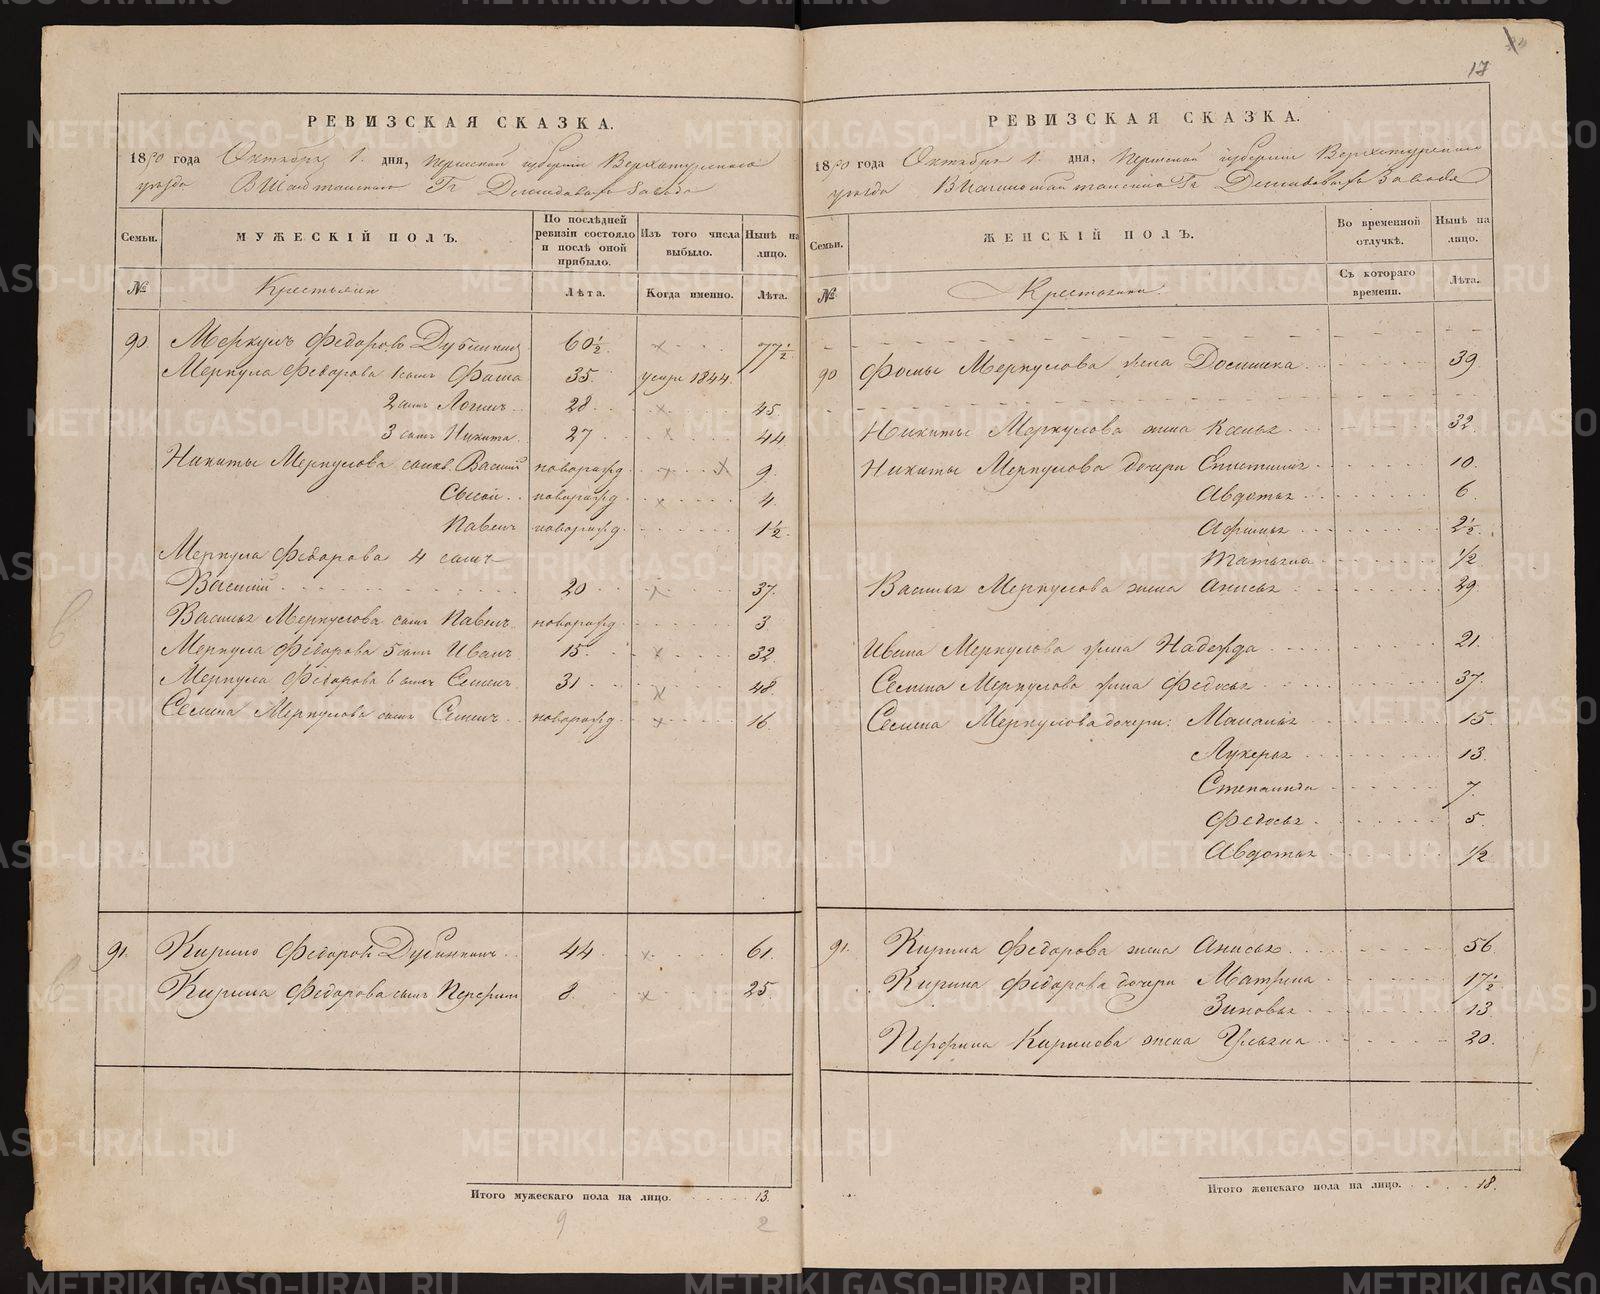 17
РЕВИЗСКАЯ СКАЗКА.
1850 года Октября 1. дня, Пермской губернии Верхотурскаго
уезда ВШайтанскаго Гг Демидовыхъ Завода
Семьи. МУЖЕСКІЙ ПОЛЪ. По послѣдней ревизіи состояло и послѣ оной прибыло. Изъ того числа выбыло. Нынѣ на лицо.
№ Крестьяни Лѣта. Когда именно. Лѣта.
90 Меркулъ Федоровъ Дубинкинъ 60½ 77½
Меркула Федорова 1 сынъ Фома 35. умеръ 1844.
2 сынъ Логинъ 28 45.
3 сынъ Никита 27 44
Никиты Меркулова сынъ Василий новорожд 9.
Сысой новорожд 4.
Павелъ новорожд 1½
Меркула Федорова 4 сынъ
Василий 20 37.
Василья Меркулова сынъ Павелъ новорожд 3
Меркула Федорова 5 сынъ Иванъ 15. 32.
Меркула Федорова 6 сынъ Семенъ 31 48.
Семена Меркулова сынъ Семенъ новорожд 16
91. Кирило Федоровъ Дубинкинъ 44 61.
Кирила Федорова сынъ Перфилъ 8. 25.
Итого мужескаго пола на лицо. 13.
9 2
РЕВИЗСКАЯ СКАЗКА.
1850 года Октября 1. дня, Пермской губернии Верхотурскаго
уезда Гг Демидовыхъ Завода
Семьи. ЖЕНСКІЙ ПОЛЪ. Во временной отлучкѣ. Нынѣ на лицо.
№ Крестьянки Съ котораго времени. Лѣта.
90 Фомы Меркулова жена Домника 39
Никиты Меркулова жена Ксенья 32.
Никиты Меркулова дочери 10.
Авдотья 6.
Афимья 2½
Татьяна 1/2
Василья Меркулова жена Анисья 29.
Ивана Меркулова жена Надежда 21.
Семена Меркулова жена Федосья 37.
Семена Меркулова дочери: Маланья 15.
Лукерья 13.
Степанида 7.
Федосья 5.
Авдотья 1/2
91. Кирила Федорова жена Анисья 56
Кирила Федорова дочери Матрена 17½
Зиновья 13
Перфила Кирилова жена Ульяна 20.
Итого женскаго пола на лицо. 18.
METRIKI.GASO-URAL.RU